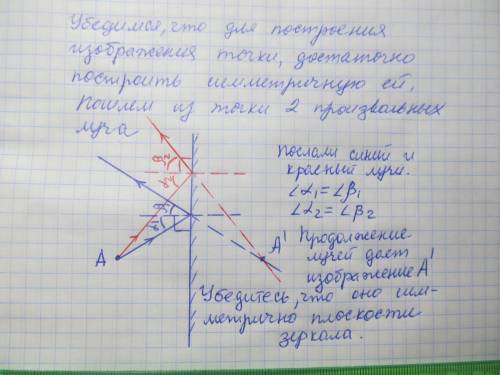 Убедимся, что для построения
изображения точки, достаточно
построить симметричную ей.
Пошлем из точки 2 произвольных
луча
β₂
α₂
β₁
α₁
A
A'
Послали синий и
красный лучи.
∠α₁=∠β₁
∠α₂=∠β₂
Продолжение
лучей дает
изображение A'
Убедитесь, что оно сим-
метрично плоскости
зеркала.